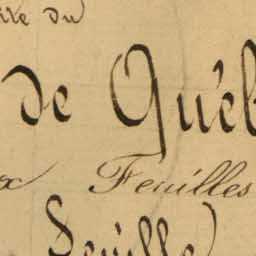 ire du
de Québ
x Feuilles
Feuille)